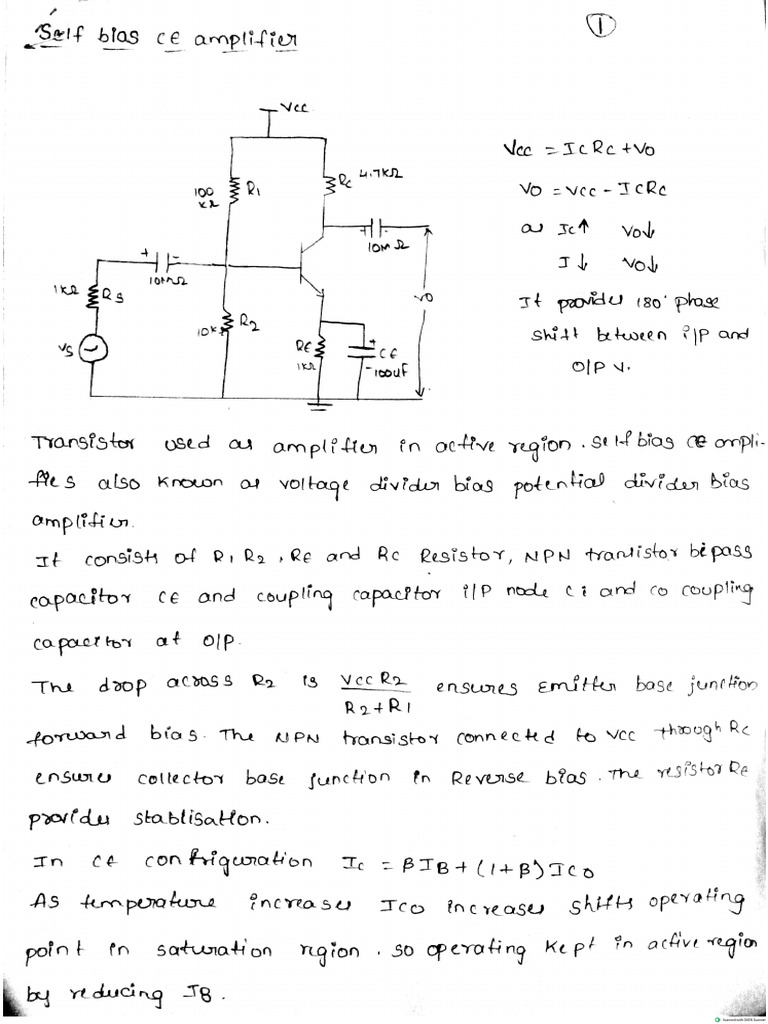 Self bias CE amplifier
1
Vcc
4.7KΩ
Rc
100
KΩ
R1
10MΩ
10MΩ
1KΩ
Rs
Vs
10K
R2
RE
1KΩ
CE
100UF
VO
Vcc = IcRc + VO
VO = Vcc - IcRc
as Ic↑ VO↓
I↓ VO↓
It provides 180° phase
shift between i/P and
O/P V.
Transistor used as amplifier in active region. self bias CE ampli-
fies also known as voltage divider bias potential divider bias
amplifier.
It consists of R1 R2, RE and Rc Resistor, NPN transistor bipass
capacitor CE and coupling capacitor i/P node Ci and Co coupling
capacitor at O/P.
The drop across R2 is VccR2 / R2+R1 ensures Emitter base junction
forward bias. The NPN transistor connected to Vcc through Rc
ensures collector base junction in Reverse bias. The resistor RE
provides stablisation.
In CE configuration Ic = βIB + (1+β)ICO
As temperature increases ICO increases shifts operating
point in saturation region. so operating kept in active region
by reducing IB.
Scanned with OKEN Scanner